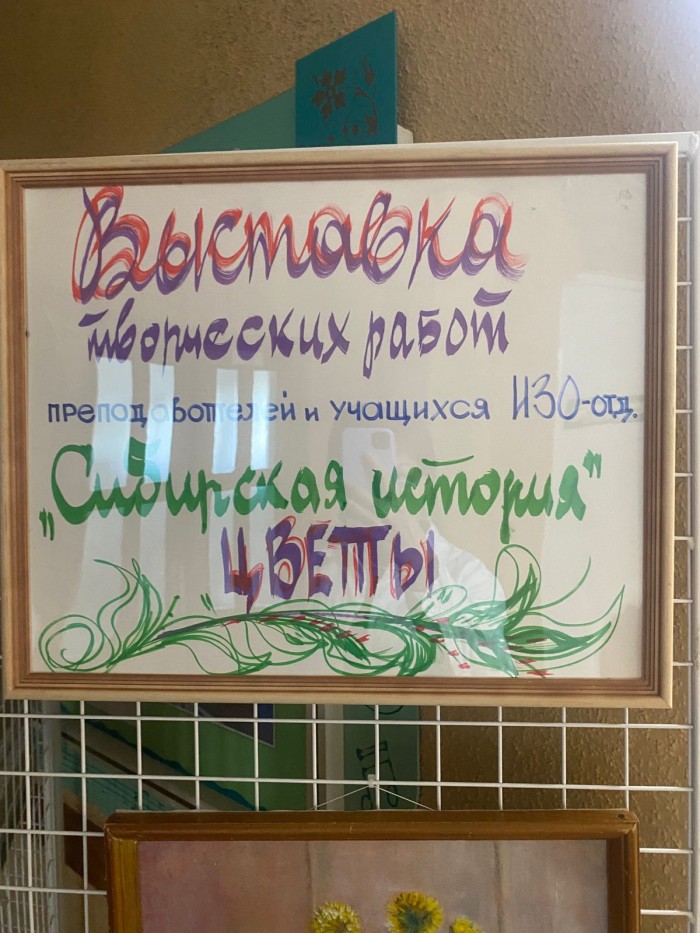 Выставка
творческих работ
преподавателей и учащихся ИЗО-отд.
"Сибирская история"
ЦВЕТЫ